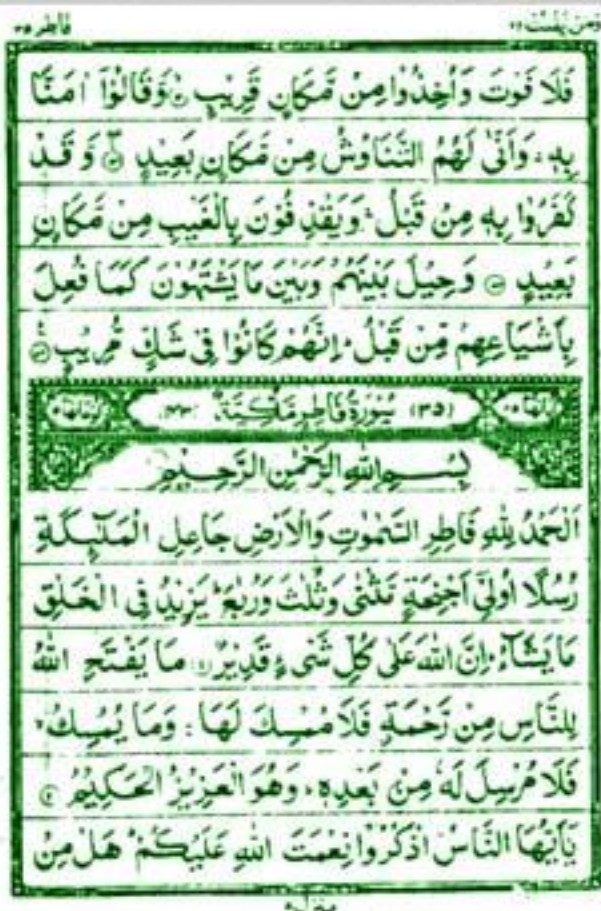 فاطر ۳۵
ومن يقنت ۲۲
فَلَا فَوْتَ وَاُخِذُوْا مِنْ مَّكَانٍ قَرِيْبٍ ۙ وَّقَالُوْٓا اٰمَنَّا
بِهٖ ۚ وَاَنّٰى لَهُمُ التَّنَاوُشُ مِنْ مَّكَانٍۢ بَعِيْدٍ ۚ وَّقَدْ
كَفَرُوْا بِهٖ مِنْ قَبْلُ ۚ وَيَقْذِفُوْنَ بِالْغَيْبِ مِنْ مَّكَانٍۢ
بَعِيْدٍ ۝ وَحِيْلَ بَيْنَهُمْ وَبَيْنَ مَا يَشْتَهُوْنَ كَمَا فُعِلَ
بِاَشْيَاعِهِمْ مِّنْ قَبْلُ ؕ اِنَّهُمْ كَانُوْا فِيْ شَكٍّ مُّرِيْبٍ ۝
(۳۵) سُوْرَةُ فَاطِرٍ مَّكِّيَّةٌ (۴۳)
بِسْمِ اللّٰهِ الرَّحْمٰنِ الرَّحِيْمِ
اَلْحَمْدُ لِلّٰهِ فَاطِرِ السَّمٰوٰتِ وَالْاَرْضِ جَاعِلِ الْمَلٰٓئِكَةِ
رُسُلًا اُولِيْٓ اَجْنِحَةٍ مَّثْنٰى وَثُلٰثَ وَرُبٰعَ ؕ يَزِيْدُ فِي الْخَلْقِ
مَا يَشَآءُ ؕ اِنَّ اللّٰهَ عَلٰى كُلِّ شَيْءٍ قَدِيْرٌ ۝ مَا يَفْتَحِ اللّٰهُ
لِلنَّاسِ مِنْ رَّحْمَةٍ فَلَا مُمْسِكَ لَهَا ۚ وَمَا يُمْسِكْ ۙ
فَلَا مُرْسِلَ لَهٗ مِنْۢ بَعْدِهٖ ؕ وَهُوَ الْعَزِيْزُ الْحَكِيْمُ ۝
يٰٓاَيُّهَا النَّاسُ اذْكُرُوْا نِعْمَتَ اللّٰهِ عَلَيْكُمْ ؕ هَلْ مِنْ